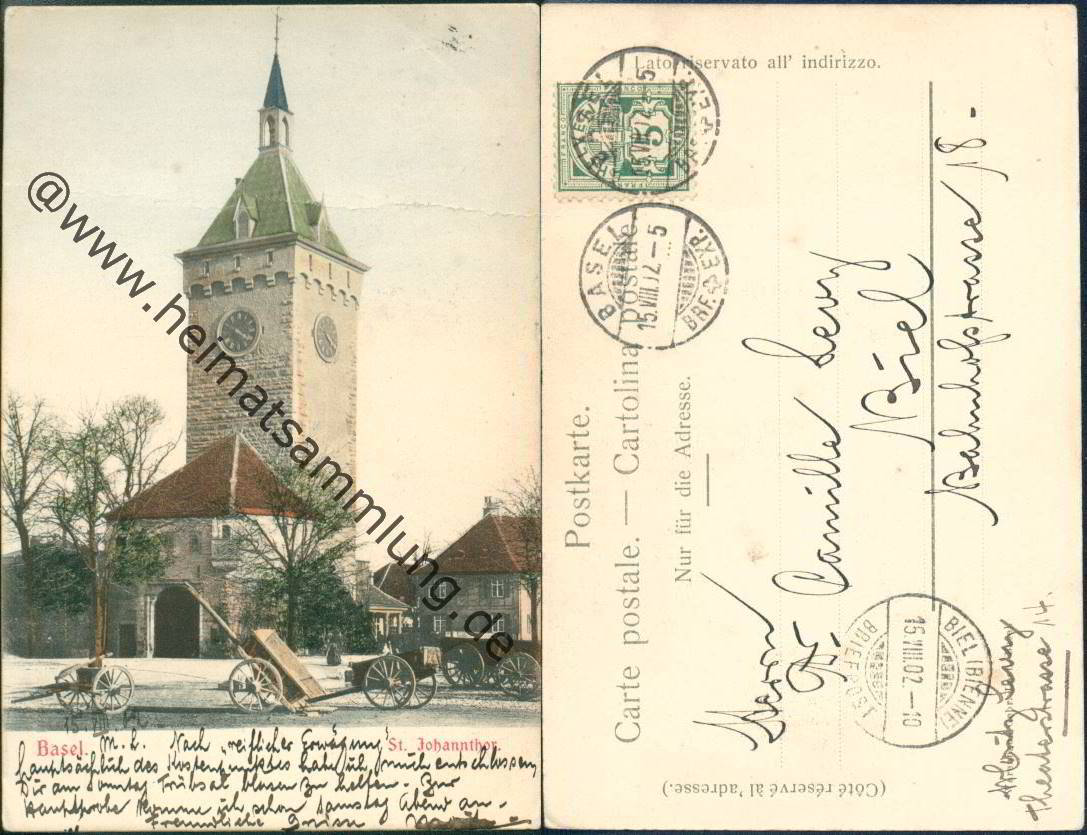 @www.heimatsammlung.de
Basel.
St. Johannthor.
15 VIII 02.
M. L. Nach „reiflicher Erwägung"
hauptsächlich des Kostenpunktes habe ich mich entschlossen,
Dir am Sonntag Trübsal blasen zu helfen. Zur
Hauptprobe komme ich schon Samstag Abend an.
Freundliche Grüsse
Postkarte.
Carte postale. — Cartolina postale.
Nur für die Adresse.
Lato riservato all' indirizzo.
(Côté réservé à l'adresse.)
FRANCO
5
BASEL
15.VIII.02.-5
BRF. EXP.
Herrn
Dr. Camille Levy
Biel
Bahnhofstrasse 18-
BIEL (BIENNE)
15.VIII.02.-10
BRIEFPOST
Theaterstrasse 14.